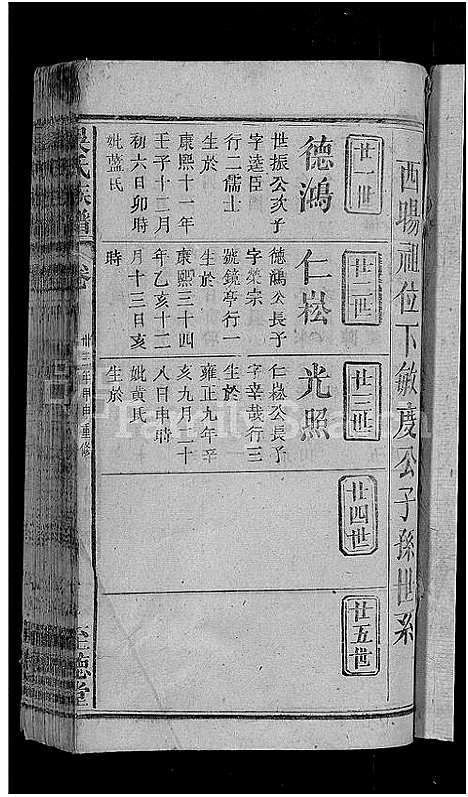 西暘祖位下敏慶公子孫世系
廿一世
德鴻
世振公次子
字逵臣
行二儒士
生於
康熙十一年
壬子十二月
初六日卯時
妣藍氏
廿二世
仁崧
德鴻公長子
字榮宗
號鏡亭行一
生於
康熙三十四
年乙亥十二
月十三日亥
時
廿三世
光照
仁崧公長子
字宰哉行三
生於
雍正九年辛
亥九月二十
八日申時
妣黄氏
生於
廿四世
廿五世
吴氏族譜
卷
年甲申重修
至德堂